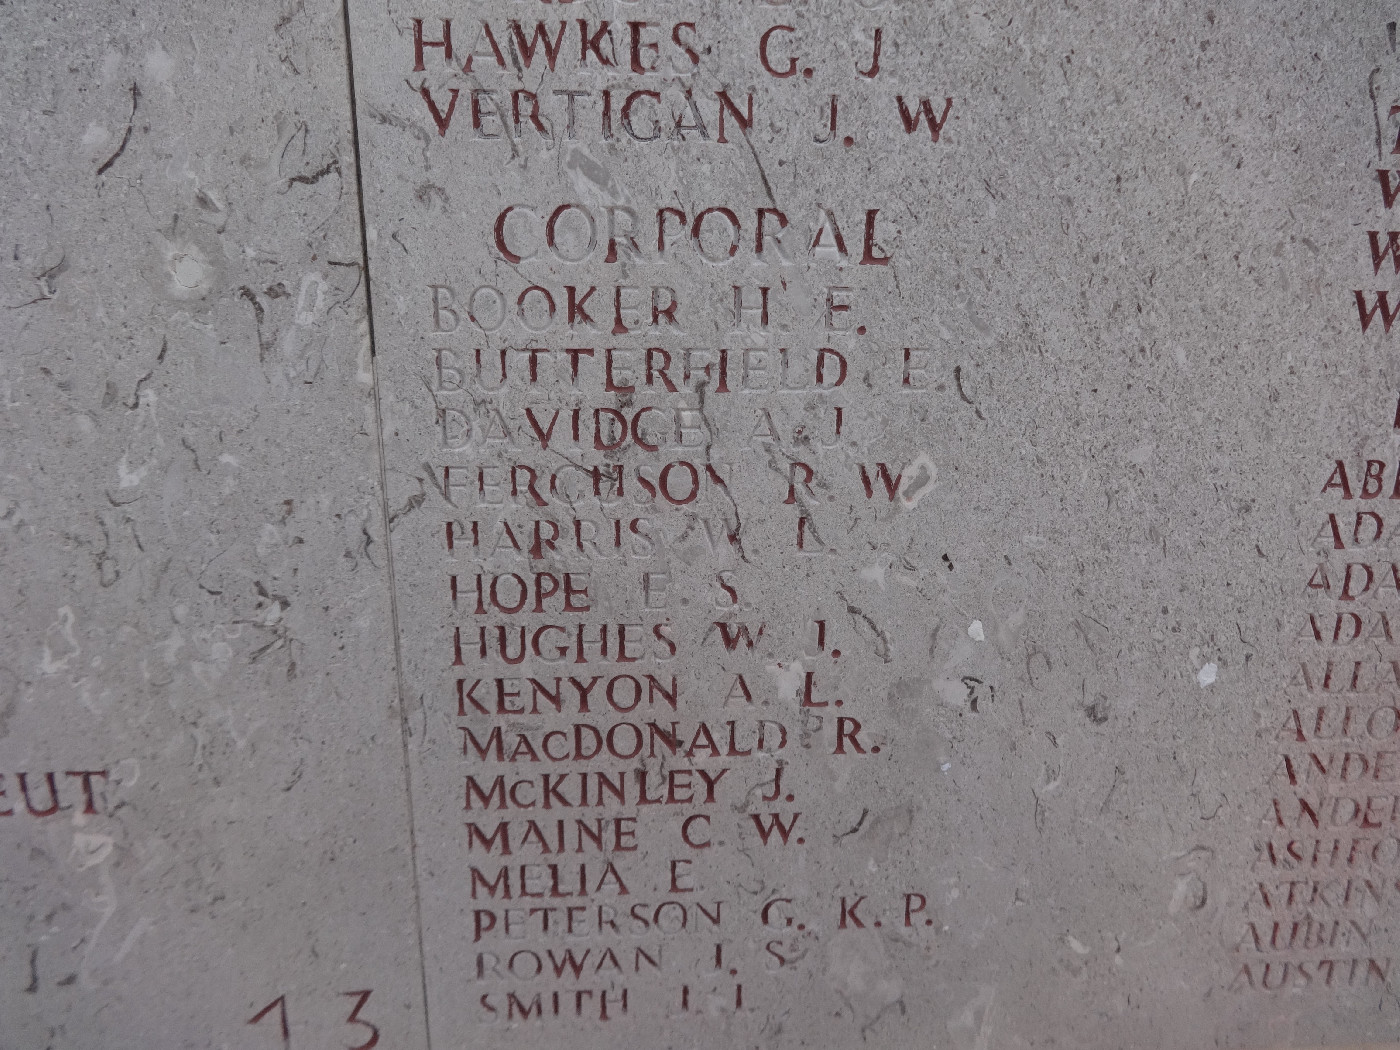 HAWKES G. J
VERTIGAN J. W
CORPORAL
BOOKER H. E.
BUTTERFIELD E.
DAVIDGE A. J.
FERGUSON R. W.
HARRIS W. L.
HOPE E. S.
HUGHES W. J.
KENYON A. L.
MACDONALD R.
MCKINLEY J.
MAINE C. W.
MELIA E.
PETERSON G. K. P.
ROWAN J. S.
SMITH J. J.
EUT
13
W
W
W
AB
AD
ADA
ADA
ALLA
ALFO
ANDE
ANDE
ASHFO
ATKIN
AUBIN
AUSTIN